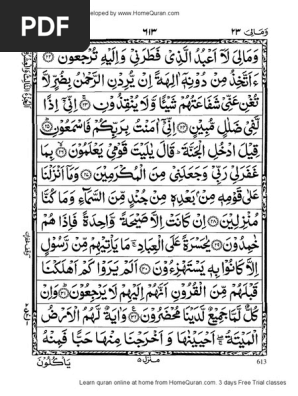 PDF
developed by www.HomeQuran.com
وَمَالِیَ ٢٣
٦١٣
وَمَالِیَ لَاۤ اَعْبُدُ الَّذِیْ فَطَرَنِیْ وَاِلَیْهِ تُرْجَعُوْنَ ﴿٢٢﴾
ءَاَتَّخِذُ مِنْ دُوْنِهٖۤ اٰلِهَةً اِنْ یُّرِدْنِ الرَّحْمٰنُ بِضُرٍّ لَّا
تُغْنِ عَنِّیْ شَفَاعَتُهُمْ شَیْـًٔا وَّلَا یُنْقِذُوْنِ ﴿٢٣﴾ اِنِّیْۤ اِذًا
لَّفِیْ ضَلٰلٍ مُّبِیْنٍ ﴿٢٤﴾ اِنِّیْۤ اٰمَنْتُ بِرَبِّكُمْ فَاسْمَعُوْنِ ﴿٢٥﴾
قِیْلَ ادْخُلِ الْجَنَّةَ ؕ قَالَ یٰلَیْتَ قَوْمِیْ یَعْلَمُوْنَ ﴿٢٦﴾ بِمَا
غَفَرَلِیْ رَبِّیْ وَجَعَلَنِیْ مِنَ الْمُكْرَمِیْنَ ﴿٢٧﴾ وَمَاۤ اَنْزَلْنَا
عَلٰی قَوْمِهٖ مِنْۢ بَعْدِهٖ مِنْ جُنْدٍ مِّنَ السَّمَآءِ وَمَا كُنَّا
مُنْزِلِیْنَ ﴿٢٨﴾ اِنْ كَانَتْ اِلَّا صَیْحَةً وَّاحِدَةً فَاِذَا هُمْ
خٰمِدُوْنَ ﴿٢٩﴾ یٰحَسْرَةً عَلَی الْعِبَادِ ؔۚ مَا یَاْتِیْهِمْ مِّنْ رَّسُوْلٍ
اِلَّا كَانُوْا بِهٖ یَسْتَهْزِءُوْنَ ﴿٣٠﴾ اَلَمْ یَرَوْا كَمْ اَهْلَكْنَا
قَبْلَهُمْ مِّنَ الْقُرُوْنِ اَنَّهُمْ اِلَیْهِمْ لَا یَرْجِعُوْنَ ﴿٣١﴾ وَاِنْ
كُلٌّ لَّمَّا جَمِیْعٌ لَّدَیْنَا مُحْضَرُوْنَ ﴿٣٢﴾ وَاٰیَةٌ لَّهُمُ الْاَرْضُ
الْمَیْتَةُ ۖۚ اَحْیَیْنٰهَا وَاَخْرَجْنَا مِنْهَا حَبًّا فَمِنْهُ
یَاْكُلُوْنَ
منزل ٥
613
Learn quran online at home from HomeQuran.com. 3 days Free Trial classes